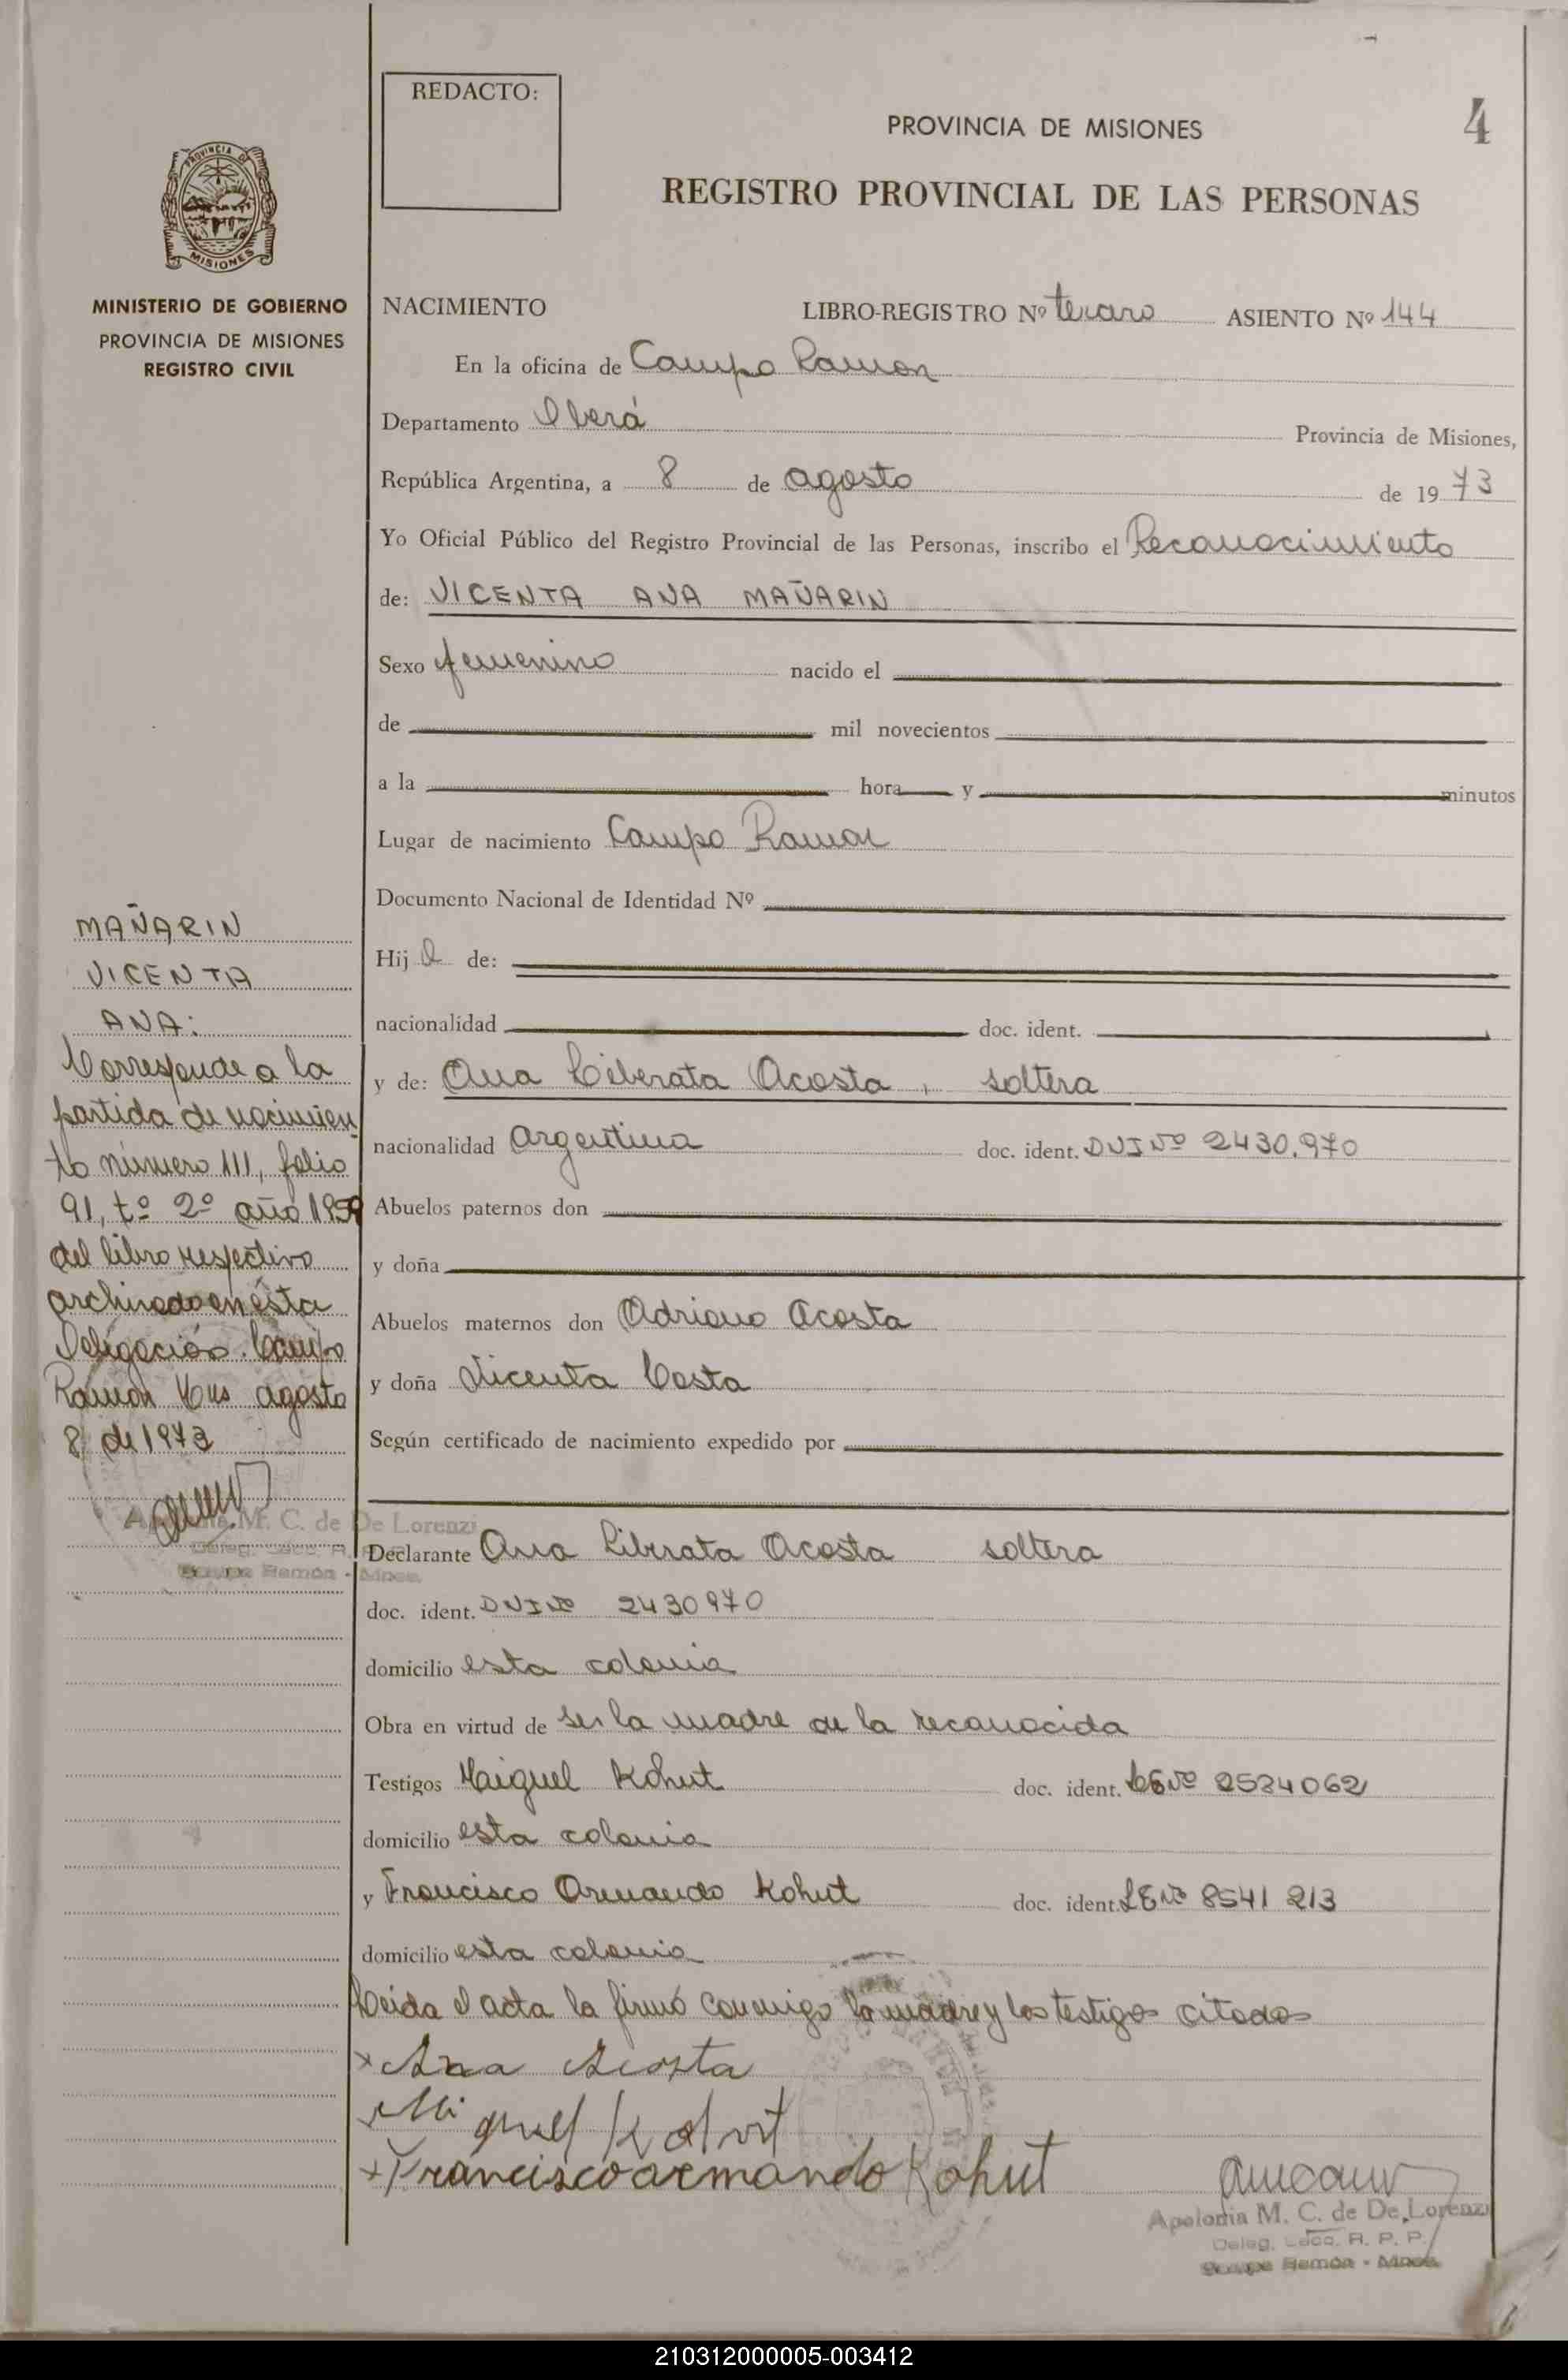 REDACTO:
PROVINCIA DE MISIONES
4
REGISTRO PROVINCIAL DE LAS PERSONAS
PROVINCIA DE
MISIONES
MINISTERIO DE GOBIERNO
PROVINCIA DE MISIONES
REGISTRO CIVIL
NACIMIENTO LIBRO-REGISTRO Nº tercero ASIENTO Nº 144
En la oficina de Campo Ramon
Departamento Oberá Provincia de Misiones,
República Argentina, a 8 de agosto de 1973
Yo Oficial Público del Registro Provincial de las Personas, inscribo el Reconocimiento
de: VICENTA ANA MAÑARIN
Sexo femenino nacido el
de mil novecientos
a la hora y minutos
Lugar de nacimiento Campo Ramon
Documento Nacional de Identidad Nº
Hija de:
nacionalidad doc. ident.
y de: Ana Liberata Acosta, soltera
nacionalidad argentina doc. ident. DNI Nº 2430.970
Abuelos paternos don
y doña
Abuelos maternos don Adriano Acosta
y doña Vicenta Costa
Según certificado de nacimiento expedido por
MAÑARIN
VICENTA
ANA:
Corresponde a la
partida de nocimien
to número 111, folio
91, tº 2º año 1959
del libro respectivo
archivado en ésta
Delegación. Campo
Ramon Mns agosto
8 de 1973
M. C. de De Lorenzi
Ramón - Mnes.
Declarante Ana Liberata Acosta soltera
doc. ident. DNI Nº 2430970
domicilio esta colonia
Obra en virtud de ser la madre de la reconocida
Testigos Miguel Kohut doc. ident. LE Nº 2534062
domicilio esta colonia
y Francisco Armando Kohut doc. ident. LE Nº 8541 213
domicilio esta colonia
Leida el acta la firmó conmigo la madre y los testigos citados
x Ana Acosta
Miguel Kohut
x Francisco armando Kohut
Apolonia M. C. de De Lorenzi
Deleg. Loco. R. P. P.
Campo Ramón - Mnes.
210312000005-003412